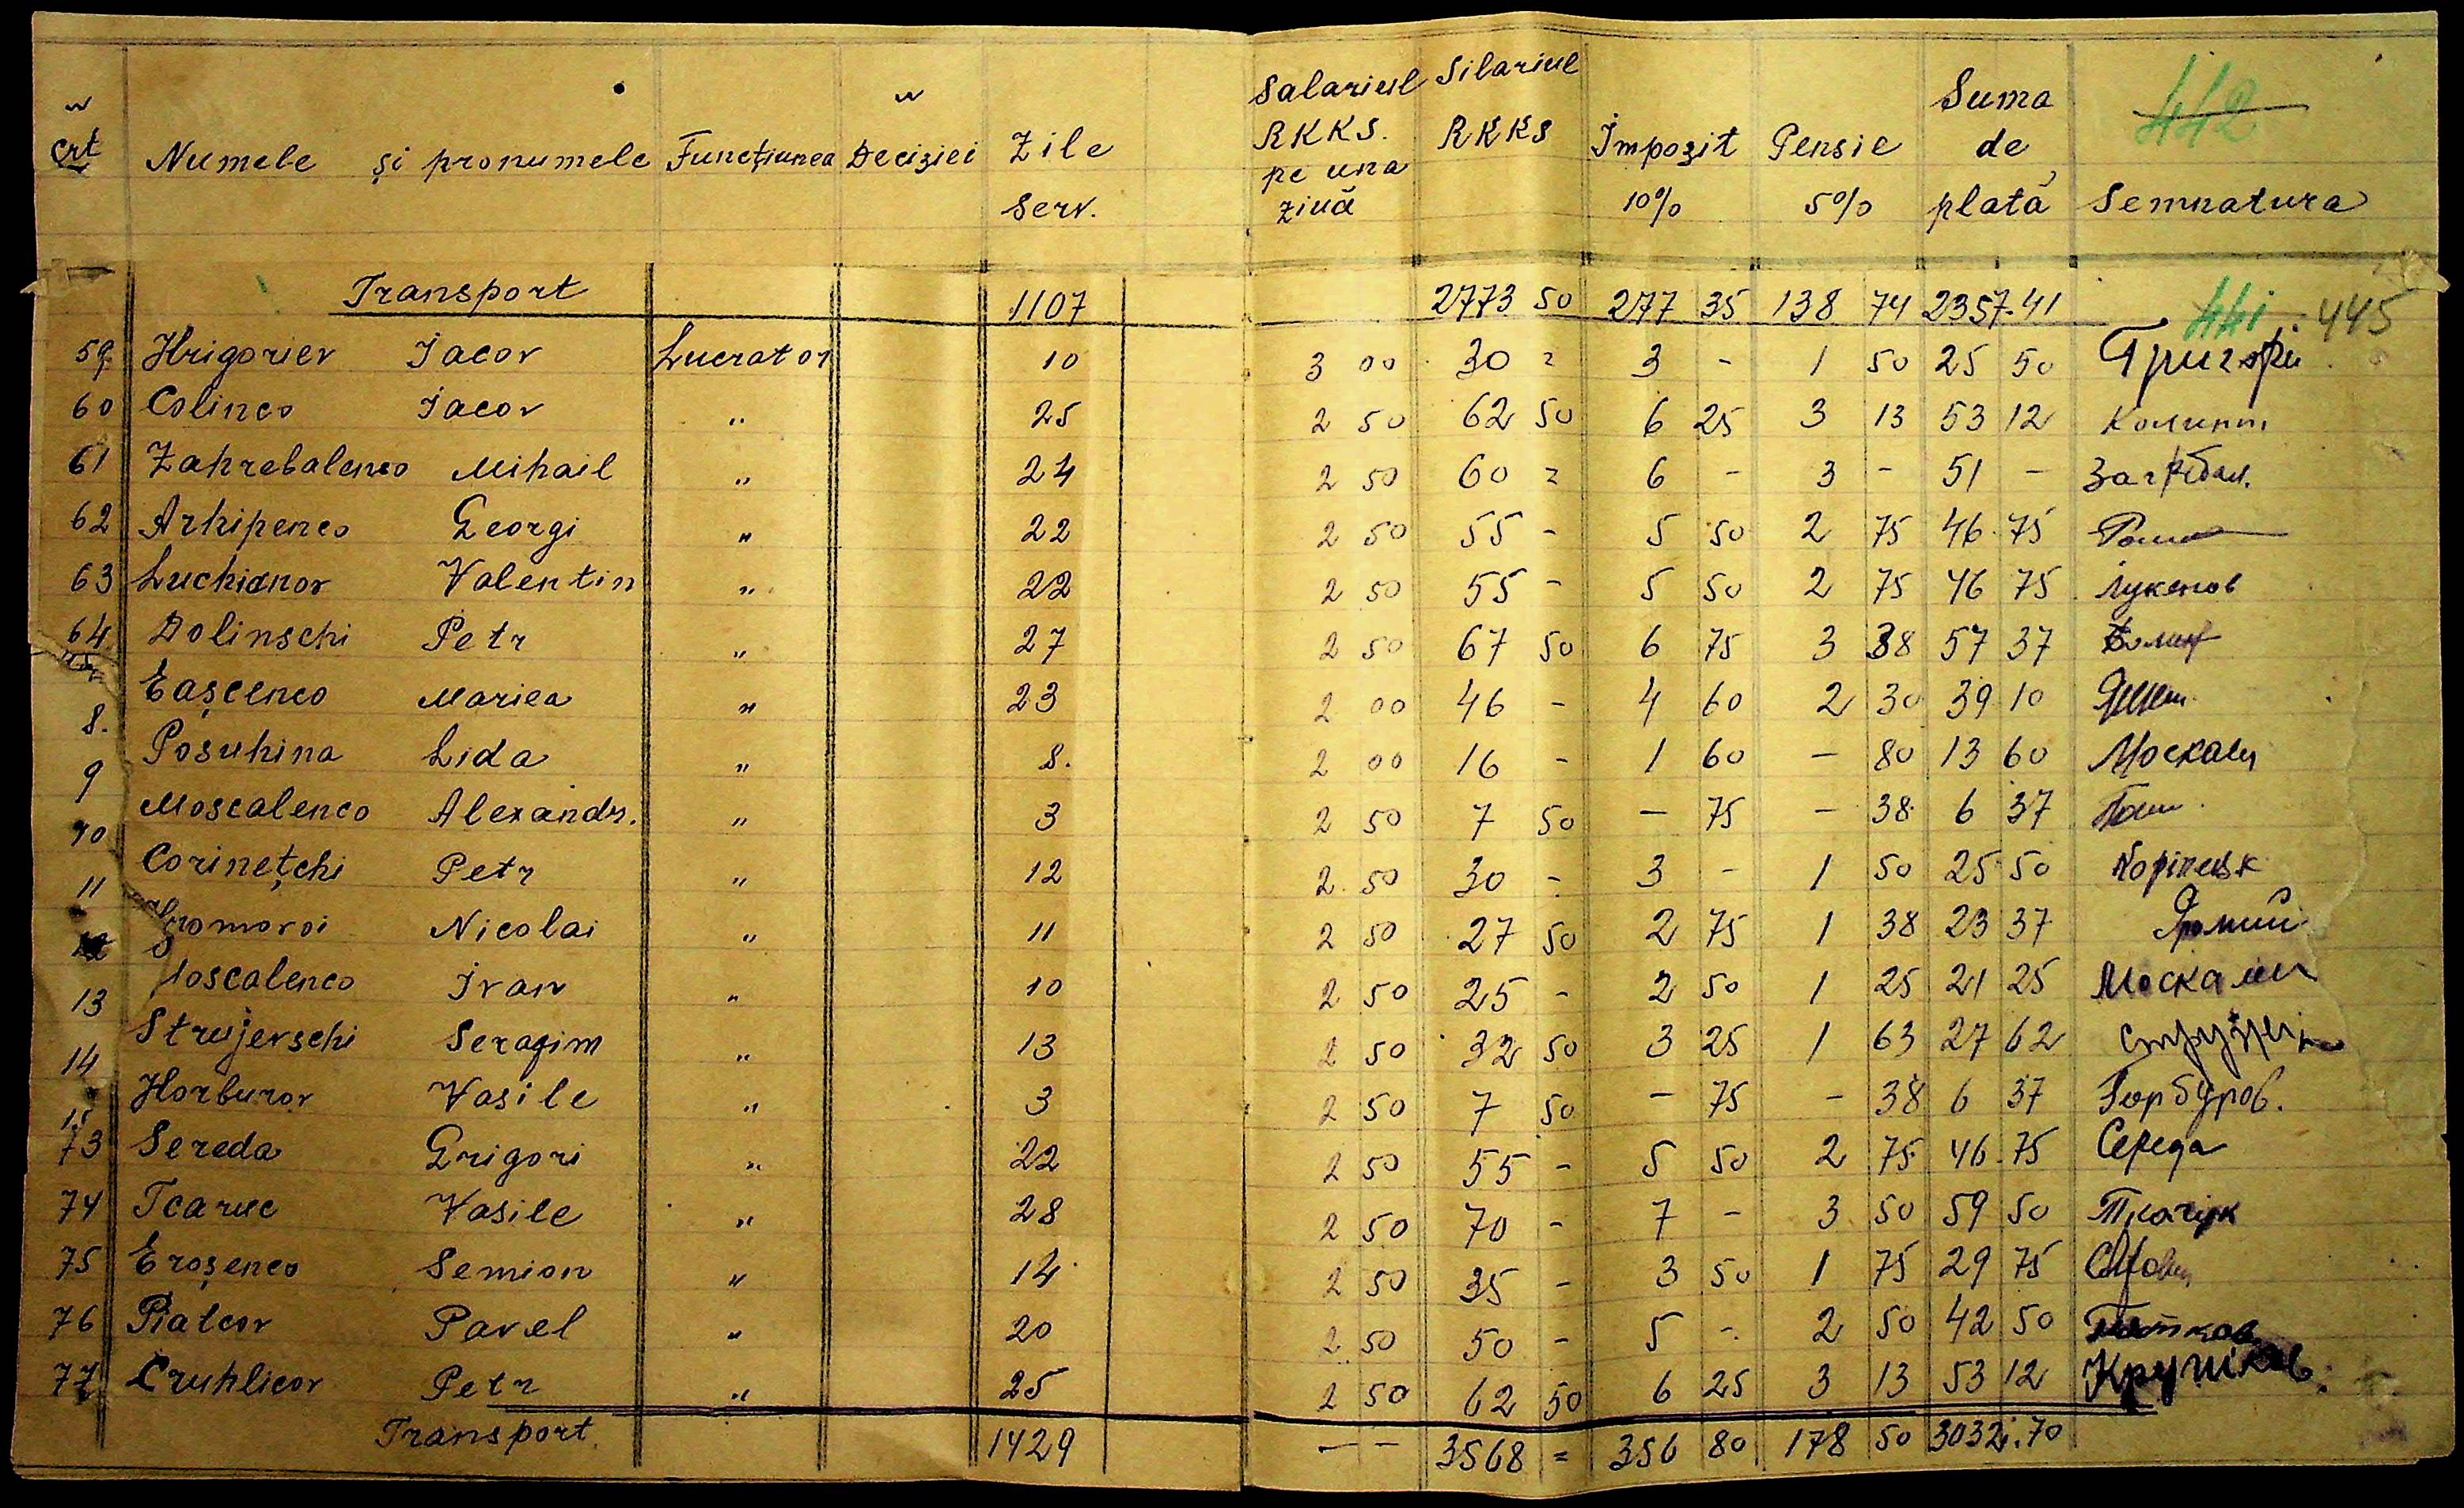 442
crt Numele și pronumele Funcțiunea Deciziei Zile serv. Salariul RKKS. pe una ziuă Silariul RKKS Impozit 10% Pensie 5% Suma de plată Semnatura
Transport 1107 2773 50 277 35 138 74 2357.41 441 445
59. Hrigoriev Iacov Lucrator 10 3 00 30 = 3 - 1 50 25 50 Григорі
60 Colinco Iacov " 25 2 50 62 50 6 25 3 13 53 12
61 Zahrebalenco Mihail " 24 2 50 60 = 6 - 3 - 51 -
62 Arhipenco Georgi " 22 2 50 55 - 5 50 2 75 46 75
63 Luchianov Valentin " 22 2 50 55 - 5 50 2 75 46 75 Лукенов
64 Dolinschi Petr " 27 2 50 67 50 6 75 3 38 57 37
Eașcenco Mariea " 23 2 00 46 - 4 60 2 30 39 10
8. Posuhina Lida " 8. 2 00 16 - 1 60 - 80 13 60
9 Moscalenco Alexandr. " 3 2 50 7 50 - 75 - 38 6 37
10 Corinețchi Petr " 12 2 50 30 - 3 - 1 50 25 50
11 Hromovoi Nicolai " 11 2 50 27 50 2 75 1 38 23 37
12 Moscalenco Ivan " 10 2 50 25 - 2 50 1 25 21 25
13 Strujevschi Serafim " 13 2 50 32 50 3 25 1 63 27 62
14 Horburov Vasile " 3 2 50 7 50 - 75 - 38 6 37 Горбуров.
15
73 Sereda Grigori " 22 2 50 55 - 5 50 2 75 46 75 Середа
74 Tcaruc Vasile " 28 2 50 70 - 7 - 3 50 59 50 Ткачук
75 Eroșenco Semion " 14 2 50 35 - 3 50 1 75 29 75
76 Piatcov Pavel " 20 2 50 50 - 5 - 2 50 42 50
77 Cruhlicov Petr " 25 2 50 62 50 6 25 3 13 53 12
Transport 1429 - - 3568 = 356 80 178 50 3032.70